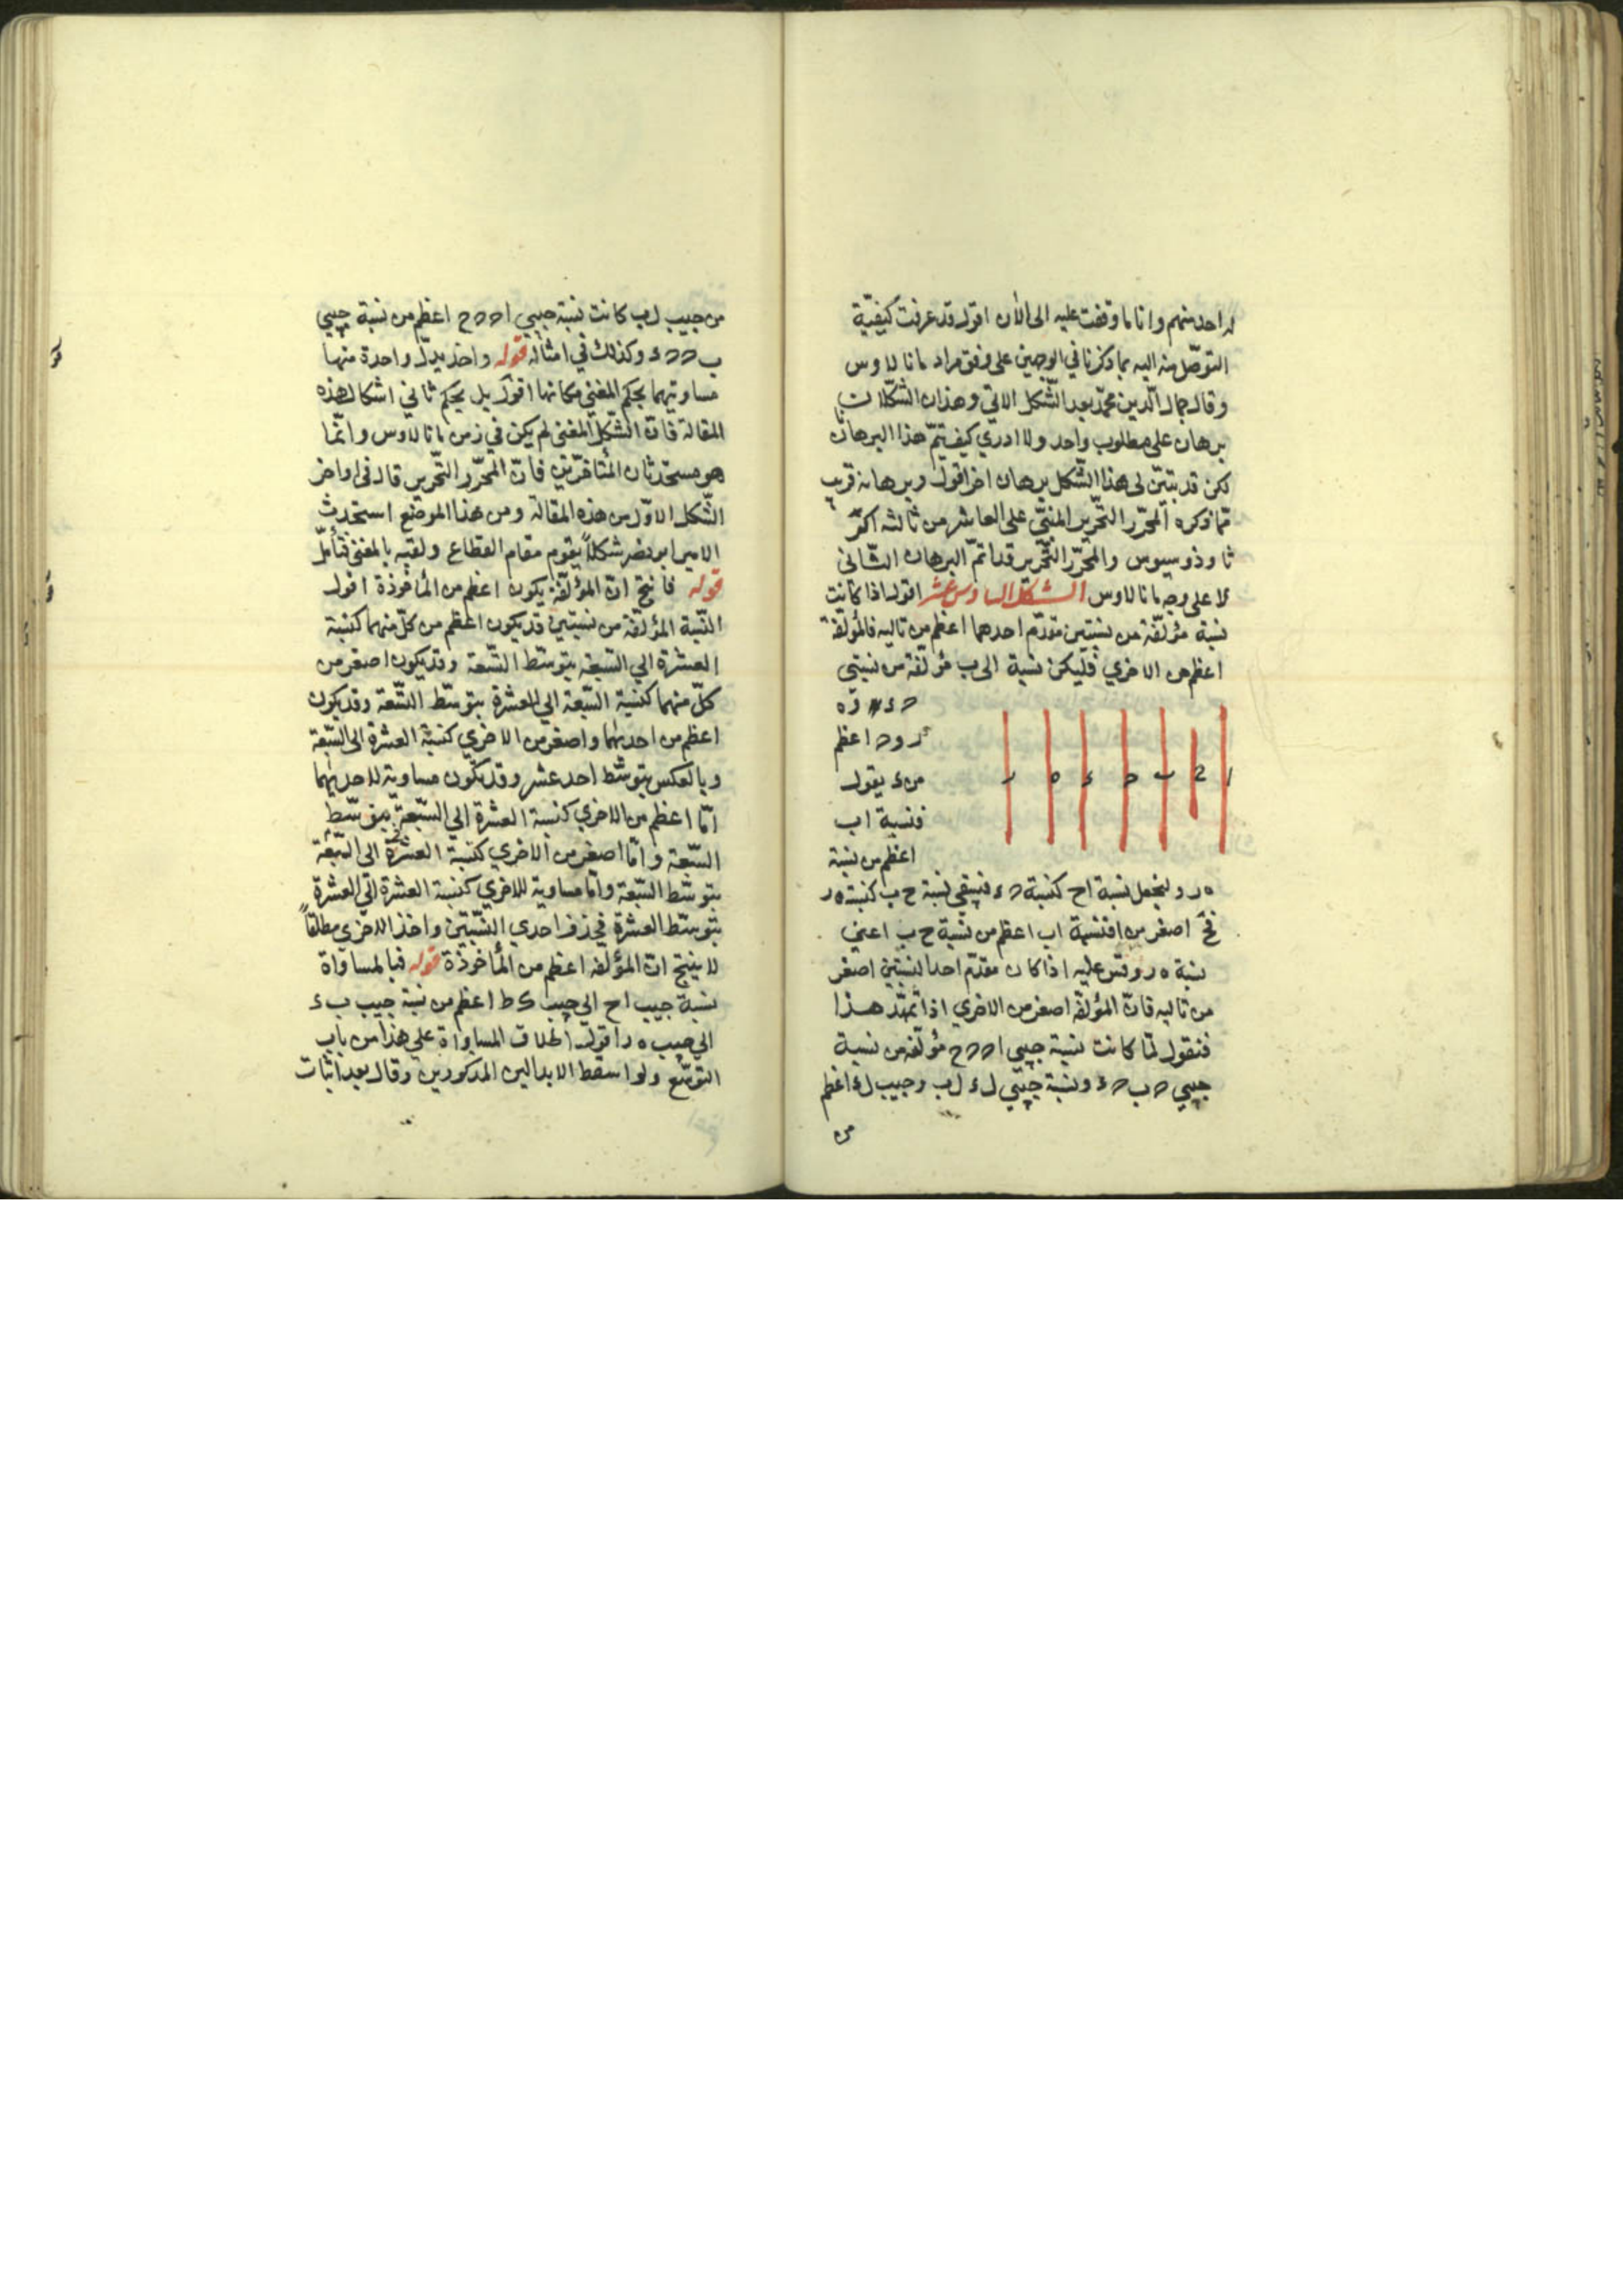 له احد منهم وانا ما وقفت عليه الى الآن اقول قد عرفت كيفيّة
التوصّل منه اليه بما ذكرنا في الوجهين على وفق مراد مانالاوس
وقال جمال الدّين محمّد بعد الشّكل الاتي وهذان الشّكلان
برهان على مطلوب واحد ولا ادري كيف يتمّ هذا البرهان
لكن قد تبيّن لي هذا الشّكل برهان اخر اقول وبرهانه قريب
ممّا ذكره المحرّر التّحرير المبنيّ على العاشر من ثالثه اكر
ثاوذوسيوس والمحرّر التّحرير قد اتمّ البرهان الثّاني
لا على وجه مانالاوس الشكل السادس عشر اقول اذا كانت
نسبة مؤلّفة من نسبتين مقدّم احدهما اعظم من تاليه فالمؤلّفة
اعظم من الاخري فليكن نسبة ا الى ب مؤلّفة من نسبتي
ح ء و ه
ر و ح اعظم
من ء يقول
فنسبة ا ب
اعظم من نسبة
ا ح ب ح ء ه ر
ه ر ولنجعل نسبة ا ح كنسبة ح ء فيبقي نسبة ح ب كنسبة ه ر
فح اصغر من ا فنسبة ا ب اعظم من نسبة ح ب اعني
نسبة ه ر وقس عليه اذا كان مقدّم احد النسبتين اصغر
من تاليه فانّ المؤلّفة اصغر من الاخري اذا تمهّد هذا
فنقول لمّا كانت نسبة جيبي ا ح ح ح مؤلّفة من نسبة
جيبي ح ب ح ء ونسبة جيبي ل ء ل ب وجيب ل ء اعظم
من
من جيب ل ب كانت نسبة جيبي ا ح ح ح اعظم من نسبة جيبي
ب ح ح ء وكذلك في امثاله قوله واخذ بدل واحدة منها
مساويتهما بحكم المغني مكانها اقول بل بحكم ثاني اشكال هذه
المقالة فانّ الشّكل المغني لم يكن في زمن مانالاوس وانّما
هو مستحدثات المتأخّرين فانّ المحرّر التّحرير قال في اواخر
الشّكل الاوّل من هذه المقالة ومن هذا الموضع استحدث
الامير ابو نصر شكلاً يقوم مقام القطاع ولقبه بالمغني فتأمّل
قوله فانتج انّ المؤلّفة يكون اعظم من المأخوذة اقول
النّسبة المؤلّفة من نسبتين قد يكون اعظم من كلّ منهما كنسبة
العشرة الي السّبعة بتوسّط التّسعة وقد يكون اصغر من
كلّ منهما كنسبة السّبعة الي العشرة بتوسّط التّسعة وقد يكون
اعظم من احديهما واصغر من الاخري كنسبة العشرة الى التّسعة
وبالعكس بتوسّط احد عشر وقد يكون مساوية لاحديهما
امّا اعظم من الاخري كنسبة العشرة الي السّبعة بتوسّط
السّبعة وامّا اصغر من الاخري كنسبة العشرة الى السّبعة
بتوسّط السّبعة وامّا مساوية للاخري كنسبة العشرة الي العشرة
بتوسّط العشرة فحذف احدي النّسبتين واخذ الاخري مطلقاً
لا ينتج انّ المؤلّفة اعظم من المأخوذة قوله فبالمساواة
نسبة جيب ا ح الي جيب ك ط اعظم من نسبة جيب ب ء
الي جيب ه ر اقول اطلاق المساواة على هذا من باب
التوسّع ولو اسقط الابدالين المذكورين وقال بعد اثبات